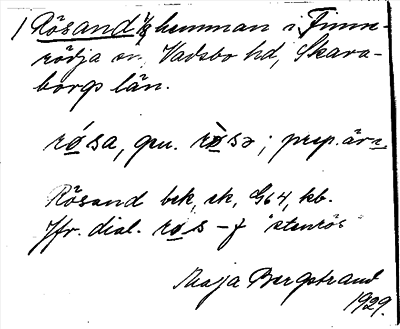 1 Rösand 1/8 hemman i Finne-
rödja sn, Vadsbo hd, Skara-
borgs län.
rósa, gen. ròsə; prep. är i.
Rösand bek, ek, G64, kb.
Jfr. dial. rös - f "stenrös"
Maja Bergstrand
1929.